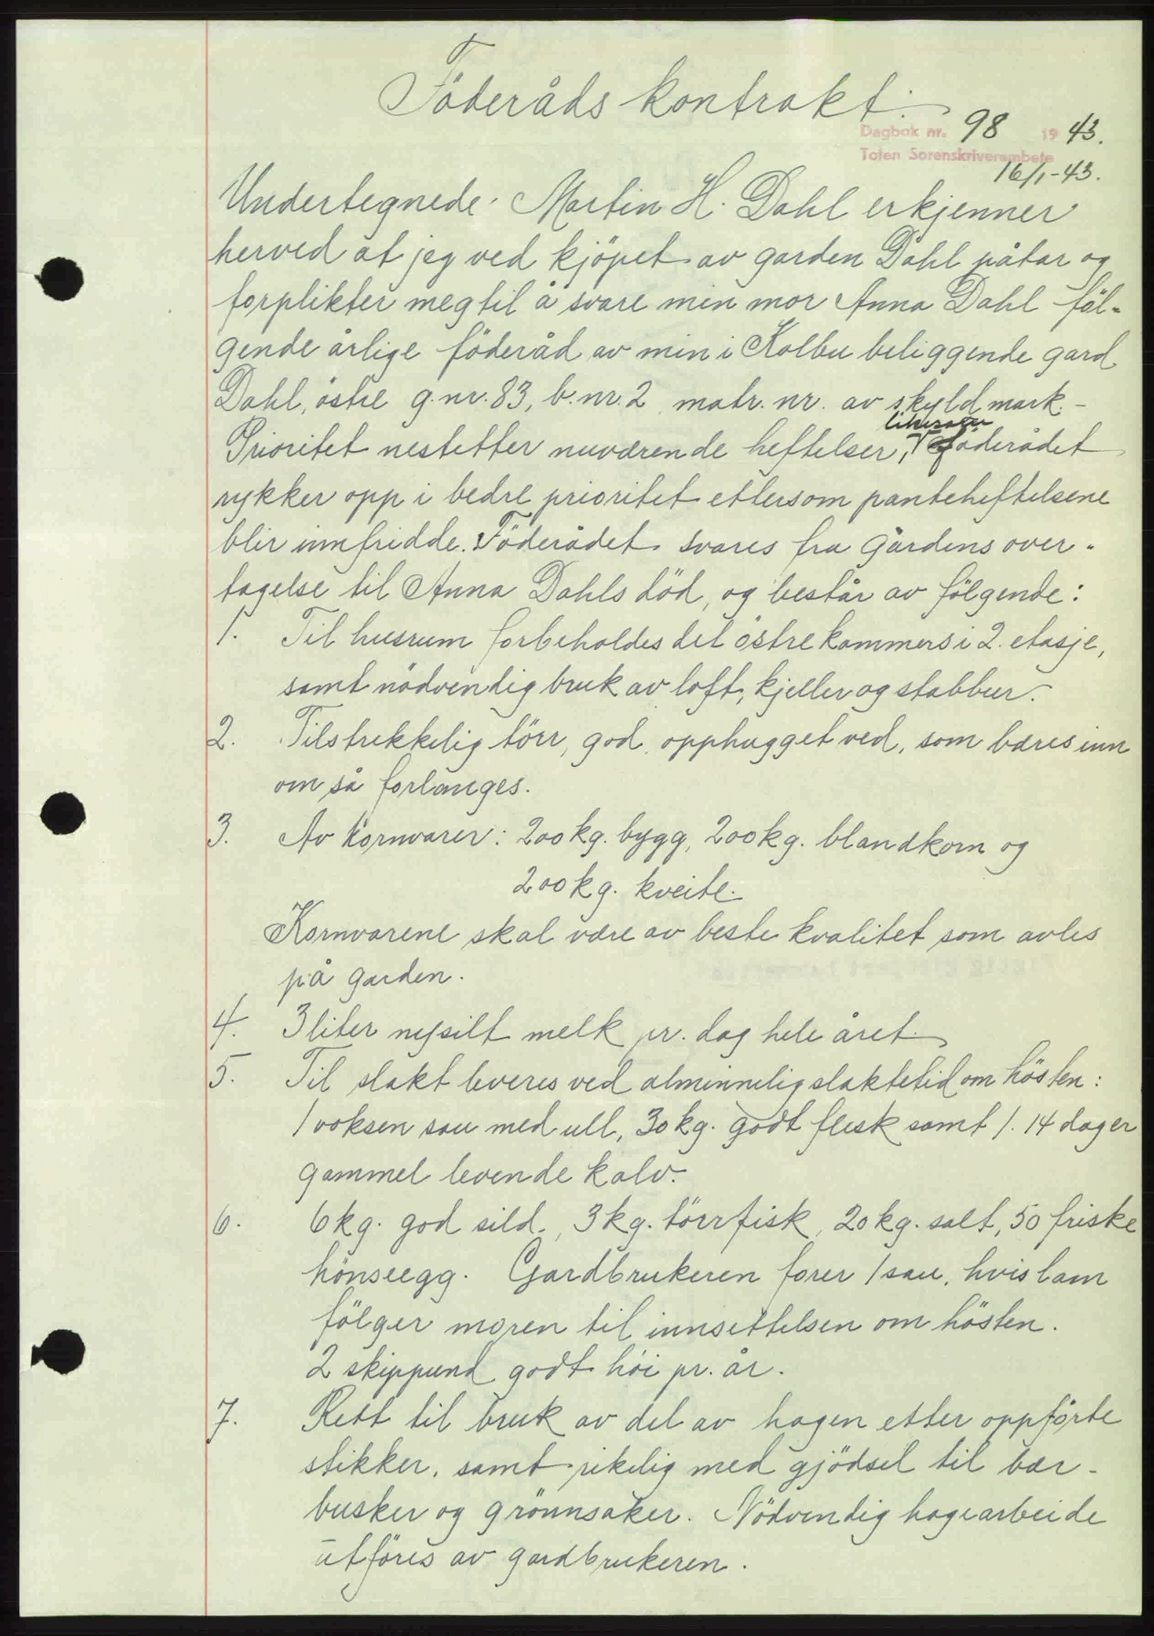 Föderåds kontrakt.
Dagbok nr. 98 1943.
Toten Sorenskriverembete
16/1-43.
Undertegnede Martin H. Dahl erkjenner
herved at jeg ved kjöpet av garden Dahl påtar og
forplikter meg til å svare min mor Anna Dahl föl-
gende årlige föderåd av min i Kolbu beliggende gard
Dahl, östre g.nr. 83, b.nr. 2 matr. nr. av skyld mark. -
Prioritet nestetter nuværende heftelser, föderådet
rykker opp i bedre prioritet ettersom panteheftelsene
blir innfridde. Föderådet svares fra gårdens over-
tagelse til Anna Dahls död, og består av fölgende:
1. Til husrum forbeholdes det östre kammers i 2. etasje,
samt nödvendig bruk av loft, kjeller og stabbur.
2. Tilstrekkelig törr, god opphugget ved, som bæres inn
om så forlanges.
3. Av Kornvarer: 200 kg. bygg, 200 kg. blandkorn og
200 kg. kveite.
Kornvarene skal være av beste kvalitet som avles
på garden.
4. 3 liter nysilt melk pr. dag hele året.
5. Til slakt leveres ved alminnelig slaktetid om hösten:
1 voksen sau med ull, 30 kg. godt flesk samt 1. 14 dager
gammel levende kalv.
6. 6 kg. god sild, 3 kg. törrfisk, 20 kg. salt, 50 friske
hönseegg. Gardbrukeren forer 1 sau, hvis lam
fölger moren til innsettelsen om hösten.
2 skippund godt höi pr. år.
7. Rett til bruk av del av hagen etter oppförte
stikker, samt rikelig med gjödsel til bær-
busker og grönnsaker. Nödvendig hagearbeide
utföres av gardbrukeren.